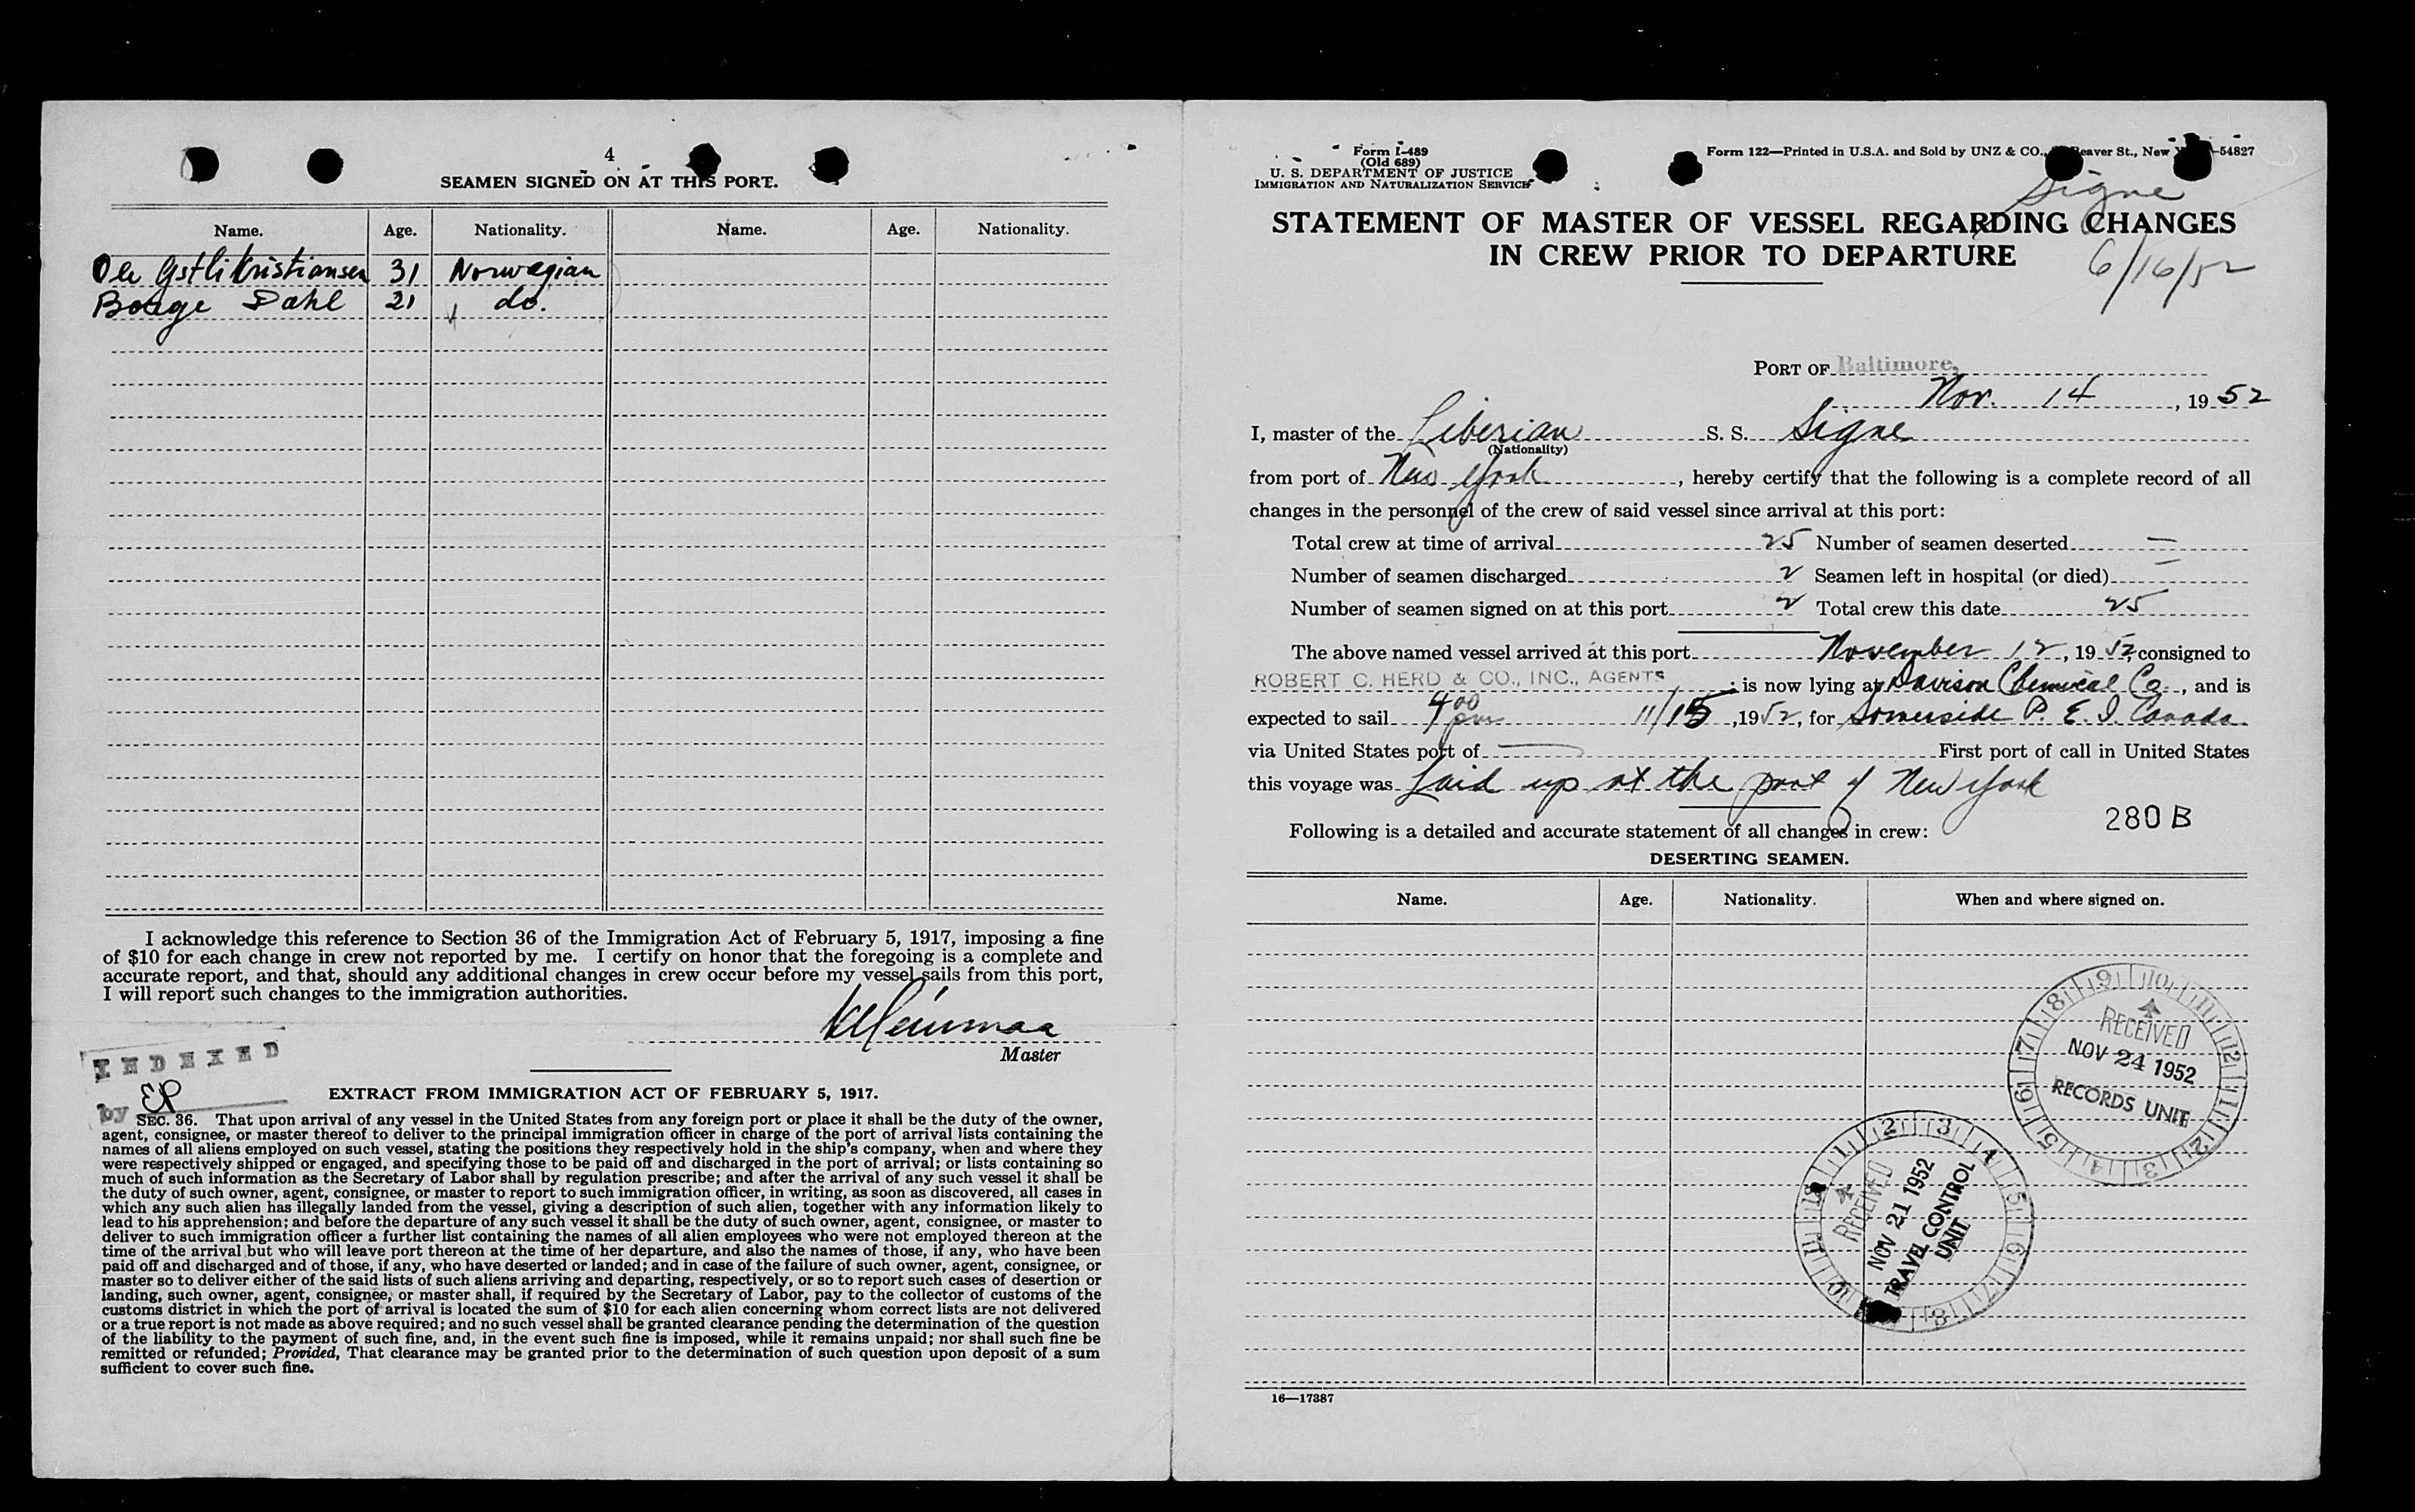 4
SEAMEN SIGNED ON AT THIS PORT.
Name. Age. Nationality. Name. Age. Nationality.
Ole Kristiansen 31 Norwegian
Borge Dahl 21 do.
I acknowledge this reference to Section 36 of the Immigration Act of February 5, 1917, imposing a fine
of $10 for each change in crew not reported by me. I certify on honor that the foregoing is a complete and
accurate report, and that, should any additional changes in crew occur before my vessel sails from this port,
I will report such changes to the immigration authorities.
Master
INDEXED
by EP
EXTRACT FROM IMMIGRATION ACT OF FEBRUARY 5, 1917.
SEC. 36. That upon arrival of any vessel in the United States from any foreign port or place it shall be the duty of the owner,
agent, consignee, or master thereof to deliver to the principal immigration officer in charge of the port of arrival lists containing the
names of all aliens employed on such vessel, stating the positions they respectively hold in the ship's company, when and where they
were respectively shipped or engaged, and specifying those to be paid off and discharged in the port of arrival; or lists containing so
much of such information as the Secretary of Labor shall by regulation prescribe; and after the arrival of any such vessel it shall be
the duty of such owner, agent, consignee, or master to report to such immigration officer, in writing, as soon as discovered, all cases in
which any such alien has illegally landed from the vessel, giving a description of such alien, together with any information likely to
lead to his apprehension; and before the departure of any such vessel it shall be the duty of such owner, agent, consignee, or master to
deliver to such immigration officer a further list containing the names of all alien employees who were not employed thereon at the
time of the arrival but who will leave port thereon at the time of her departure, and also the names of those, if any, who have been
paid off and discharged and of those, if any, who have deserted or landed; and in case of the failure of such owner, agent, consignee, or
master so to deliver either of the said lists of such aliens arriving and departing, respectively, or so to report such cases of desertion or
landing, such owner, agent, consignee, or master shall, if required by the Secretary of Labor, pay to the collector of customs of the
customs district in which the port of arrival is located the sum of $10 for each alien concerning whom correct lists are not delivered
or a true report is not made as above required; and no such vessel shall be granted clearance pending the determination of the question
of the liability to the payment of such fine, and, in the event such fine is imposed, while it remains unpaid; nor shall such fine be
remitted or refunded; Provided, That clearance may be granted prior to the determination of such question upon deposit of a sum
sufficient to cover such fine.
Form I-489
(Old 689)
U. S. DEPARTMENT OF JUSTICE
IMMIGRATION AND NATURALIZATION SERVICE
Form 122—Printed in U.S.A. and Sold by UNZ & CO., Beaver St., New -54827
Signe
STATEMENT OF MASTER OF VESSEL REGARDING CHANGES
IN CREW PRIOR TO DEPARTURE
6/16/52
PORT OF Baltimore,
Nov. 14, 1952
I, master of the Liberian S. S. Signe
(Nationality)
from port of New York, hereby certify that the following is a complete record of all
changes in the personnel of the crew of said vessel since arrival at this port:
Total crew at time of arrival 25 Number of seamen deserted —
Number of seamen discharged 2 Seamen left in hospital (or died) —
Number of seamen signed on at this port 2 Total crew this date 25
The above named vessel arrived at this port November 12, 1952, consigned to
ROBERT C. HERD & CO., INC., AGENTS; is now lying at Davison Chemical Co., and is
expected to sail 4 00 pm 11/15, 1952, for Somerside P. E. I. Canada
via United States port of — First port of call in United States
this voyage was Laid up at the port of New York
280 B
Following is a detailed and accurate statement of all changes in crew:
DESERTING SEAMEN.
Name. Age. Nationality. When and where signed on.
9 10 11 12 1 2 3 4 5 6 7 8
RECEIVED
NOV 24 1952
RECORDS UNIT
1 2 3 4 5 6 7 8 10 11 12
RECEIVED
NOV 21 1952
TRAVEL CONTROL
UNIT
16—17387